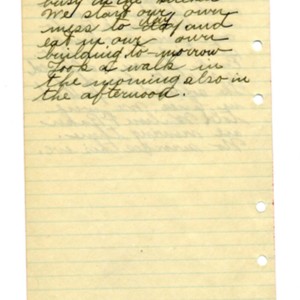 busy in the
We start our own
mess to day and
eat in our own
building to morrow
Took a walk in
the morning also in
the afternoon.